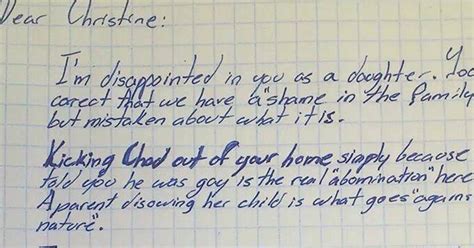 Dear Christine:
I'm disappointed in you as a daughter. You
corect that we have a "shame in the family
but mistaken about what it is.
Kicking Chad out of your home simply because
told you he was gay is the real "abomination" here
A parent disowing her child is what goes "agains
nature".